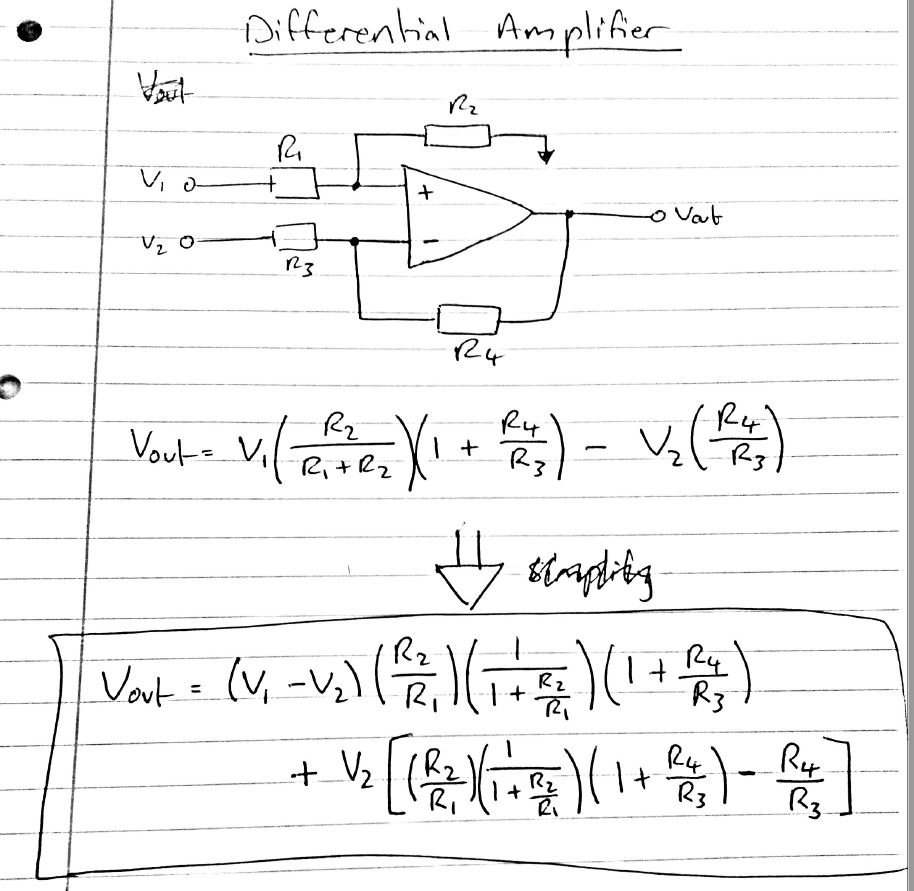 Differential Amplifier
Vout
R2
R1
V1
+
Vout
V2
-
R3
R4
Vout = V1(R2/(R1+R2))(1 + R4/R3) - V2(R4/R3)
simplify
Vout = (V1 - V2)(R2/R1)(1/(1 + R2/R1))(1 + R4/R3)
+ V2[(R2/R1)(1/(1 + R2/R1))(1 + R4/R3) - R4/R3]